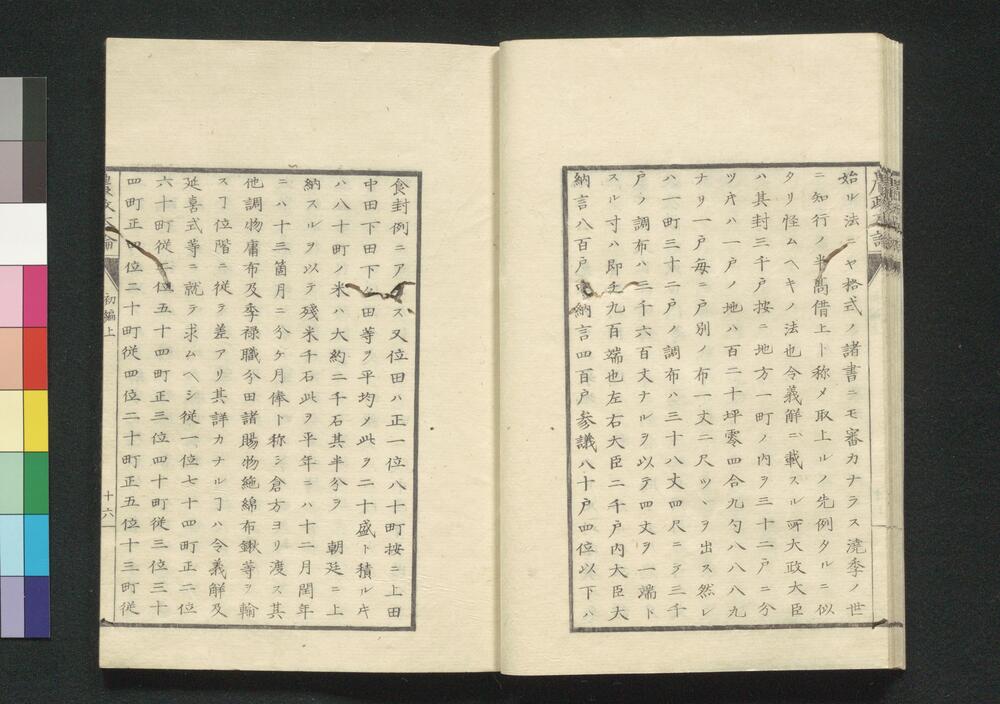 始ル法ニヤ格式ノ諸書ニモ審カナラス澆季ノ世
ニ知行ノ半髙借上ト称メ取上ルノ先例タルニ似
タリ怪ムヘキノ法也令義解ニ載スル所大政大臣
ハ其封三千戸按ニ地方一町ノ内ヲ三十二戸ニ分
ツ片ハ一戸ノ地ハ百二十坪零四合九勺八八八九
ナリ一戸毎ニ戸別ノ布一丈二尺ツヽヲ出ス然レ
ハ一町三十二戸ノ調布ハ三十八丈四尺ニヲ三千
戸ノ調布ハ三千六百丈ナルヲ以テ四丈ヲ一端ト
スル寸ハ即チ九百端也左右大臣二千戸内大臣大
納言八百戸中納言四百戸参議八十戸四位以下ハ
食封例ニアラス又位田ハ正一位八十町按ニ上田
中田下田下々田等ヲ平均メ此ヲ二十盛ト積ルキ
ハ八十町ノ米ハ大約二千石其半分ヲ 朝廷ニ上
納スルヲ以テ殘米千石此ヲ平年ニハ十二月閏年
ニハ十三箇月ニ分ケ月俸ト称シ倉方ヨリ渡ス其
他調物庸布及季禄職分田諸賜物絁綿布鍬等ヲ輸
スヿ位階ニ従テ差アリ其詳カナルヿハ令義解及
延喜式等ニ就テ求ムヘシ従一位七十四町正二位
六十町従二位五十四町正三位四十町従三位三十
四町正四位二十町従四位二十町正五位十三町従
初編上
十六